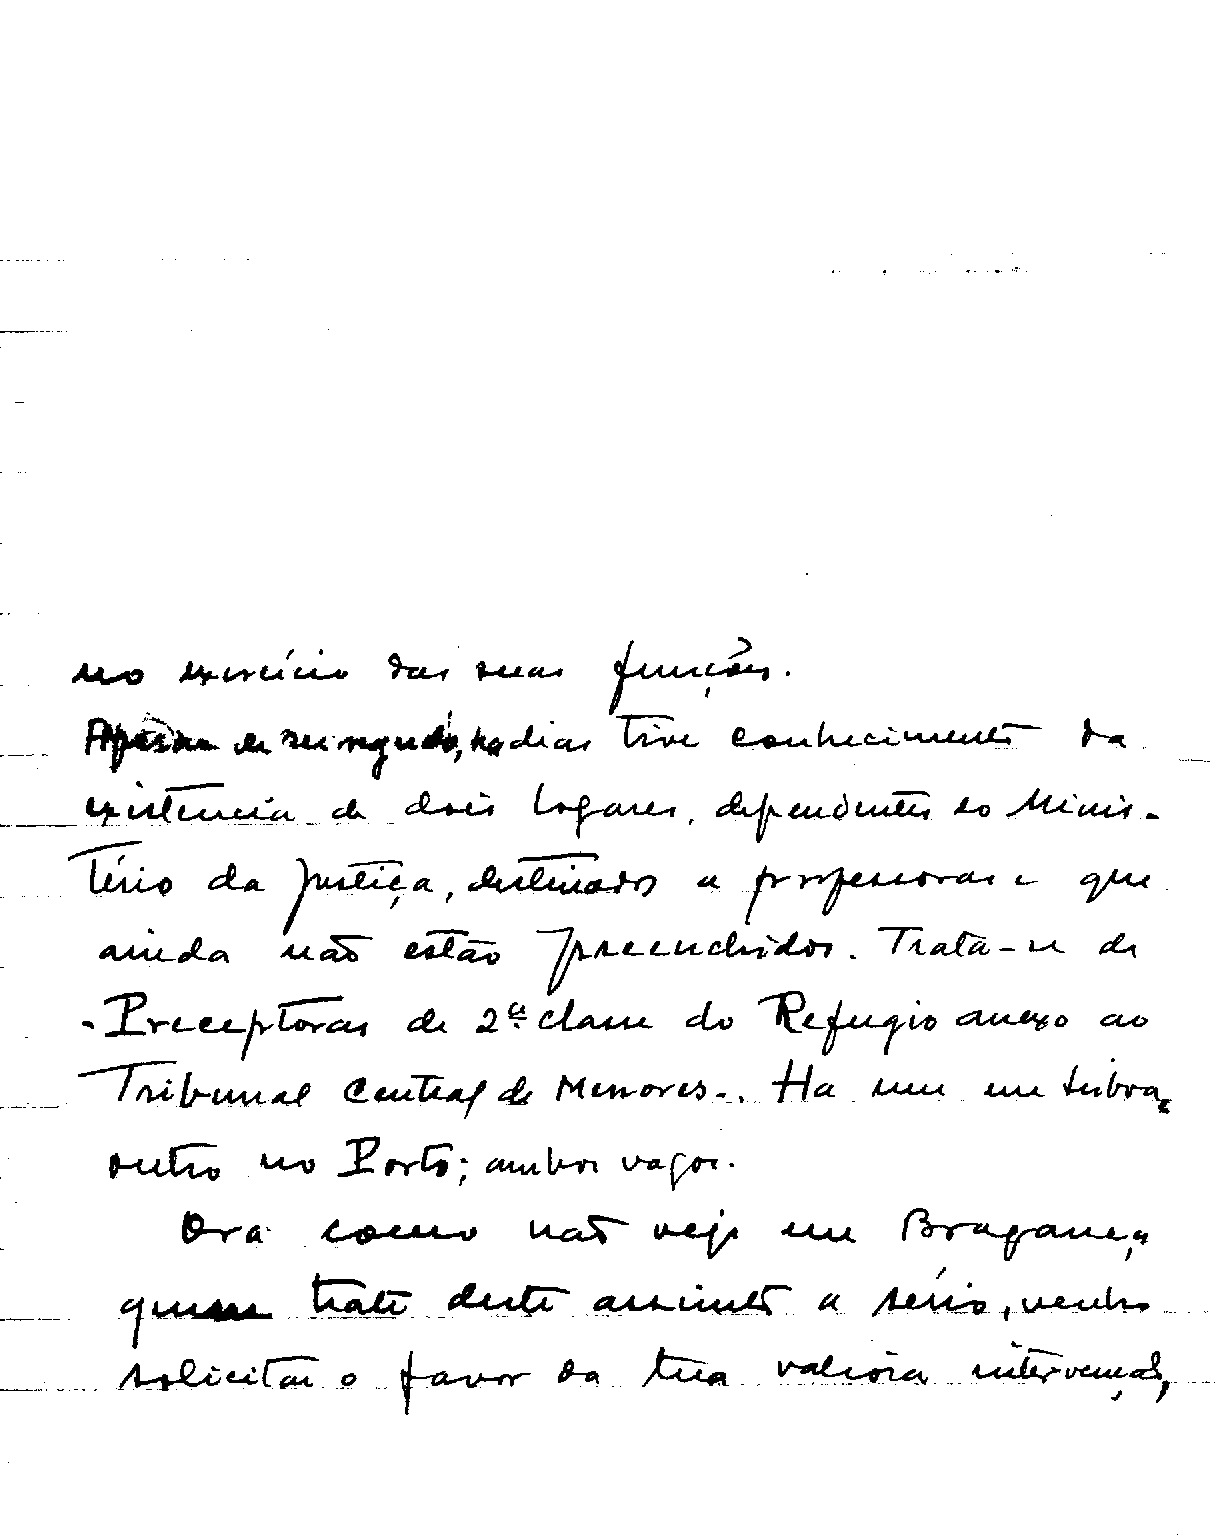 no exercício das suas funções.
Apesar de ser segredo, ha dias tive conhecimento da
existencia de dois logares, dependentes do Minis-
tério da Justiça, destinados a professoras e que
ainda não estão preenchidos. Trata-se de
-Preceptoras de 2ª classe do Refugio anexo ao
Tribunal Central de Menores-. Ha um em Lisboa e
outro no Porto; ambos vagos.
Ora como não vejo em Bragança
quem trate deste assunto a sério, venho
solicitar o favor da tua valiosa intervenção,